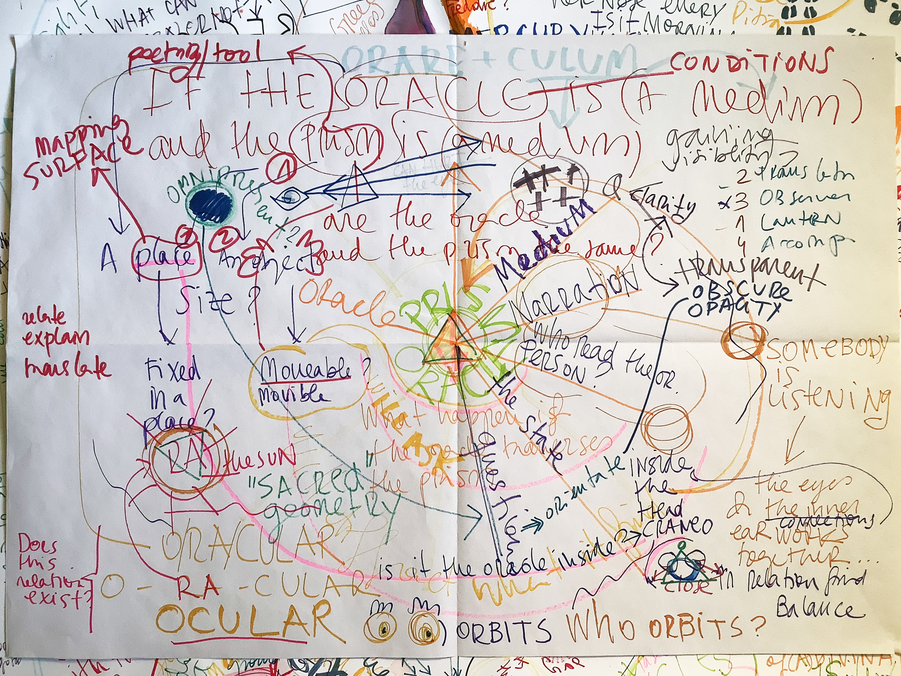 WHAT CAN
poetry/tool
ORARE + CULUM
CONDITIONS
IF THE ORACLE IS (A MEDIUM)
mapping
SURFACE
and the Prism (is a medium)
gaining
visibility
omnipresent?
1
2 translator
3 OBserver
1 LANTERN
4 Accomp
A clarity
are the oracle
and the prism the same?
Medium
A place
2
An object
3
Size?
transparent
OBSCURE
OPACITY
Oracle
PRISM
ORACLE
NARRATION
who read the or
PERSON?
relate
explain
translate
Fixed
in a
place?
Moveable?
movible
SOMEBODY
IS
LISTENING
the state
What happen if
the oracle traverses
the prism
THE ASK
question
RA
the SUN
"SACRED"
geometry
orientate
inside
the
Head
CRANEO
the eyes
& the inner
ear works
together....
connections
Does
this
relation
exist?
ORACULAR
is it the oracle inside?
O - RA - CULAR
close
in relation find
Balance
OCULAR
ORBITS
Who ORBITS?